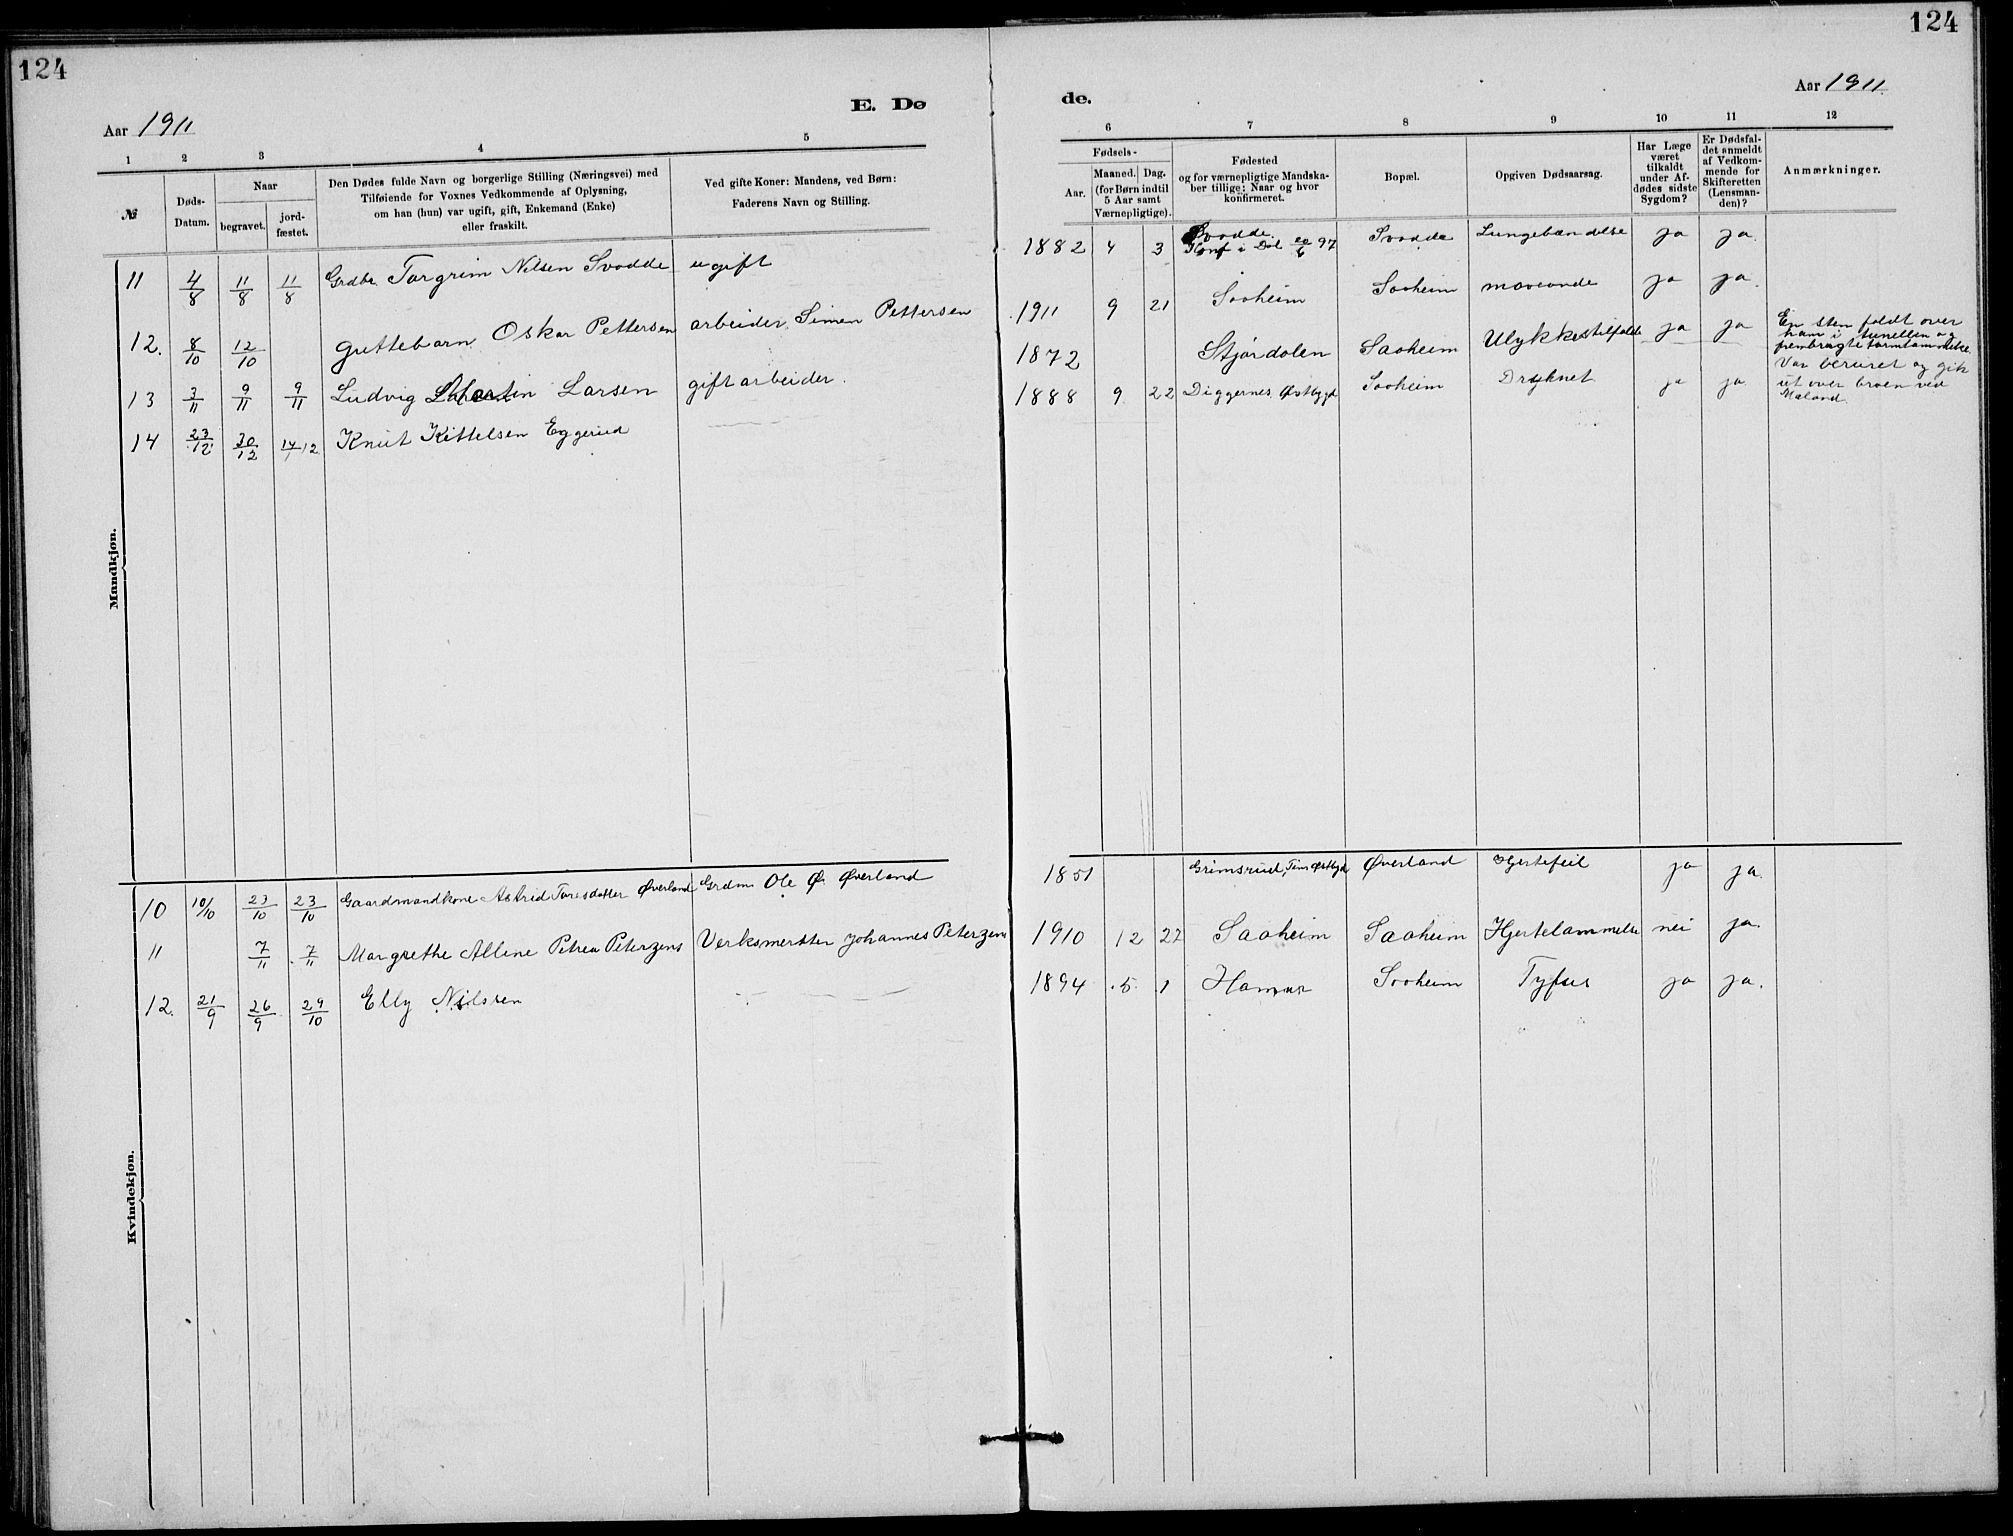 124
124
Aar 1911
E. Dø
de.
Aar 1911
1 2 3 4 5
6 7 8 9 10 11 12
№
Døds-
Datum.
Naar
begravet.
jord-
fæstet.
Den Dødes fulde Navn og borgerlige Stilling (Næringsvei) med
Tilføiende for Voxnes Vedkommende af Oplysning,
om han (hun) var ugift, gift, Enkemand (Enke)
eller fraskilt.
Ved gifte Koner: Mandens, ved Børn:
Faderens Navn og Stilling.
Fødsels-
Aar.
Maaned. Dag.
(for Børn indtil
5 Aar samt
Værnepligtige).
Fødested
og for værnepligtige Mandska-
ber tillige: Naar og hvor
konfirmeret.
Bopæl.
Opgiven Dødsaarsag.
Har Læge
været
tilkaldt
under Af-
dødes sidste
Sygdom?
Er Dødsfal-
det anmeldt
af Vedkom-
mende for
Skifteretten
(Lensman-
den)?
Anmærkninger.
Mandkjøn.
11 4/8 11/8 11/8 Grdbr. Torgrim Nilsen Svadde ugift 1882 4 3 Svadde. Konf i Dal 20/6 97 Svadde Lungebændelse ja ja.
12. 8/10 12/10 Guttebarn Oskar Pettersen arbeider Simen Pettersen 1911 9 21 Saaheim Saaheim maveonde ja ja.
13 3/11 9/11 9/11 Ludvig Martin Larsen gift arbeider. 1872 Stjørdalen Saaheim Ulykkestilfælde ja ja En sten faldt over
ham i tunellen og
frembragte tarmlammelse
14 23/12 30/12 14/1 12 Knut Kittelsen Eggerud 1888 9 22 Diggernes, Østbygd Saaheim Druknet ja ja Var beruset og gik
ut over broen ved
Mæland.
Kvindekjøn.
10 10/10 23/10 23/10 Gaardmandkone Astrid Toresdatter Øverland Grdm. Ole O. Øverland 1851 Grimsrud, Tinn Østbygd Øverland Hjertefeil ja ja.
11 7/11 7/11 Margrethe Alline Petrea Peterzens Verksmester Johannes Peterzens 1910 12 27 Saaheim Saaheim Hjertelammelse nei ja.
12. 21/9 26/9 29/10 Elly Nilssen 1894 5. 1 Hamar Saaheim Tyfus ja ja.